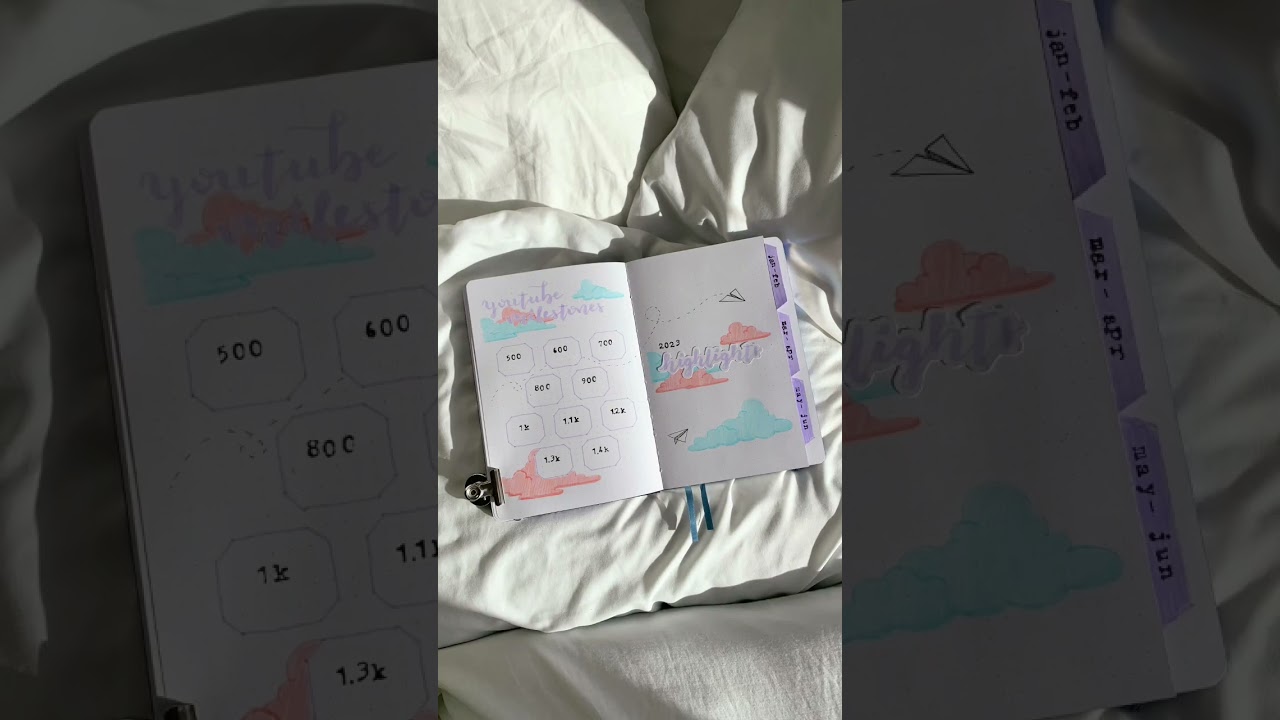 youtube
milestones
500 600 700
800 900
1k 1.1k 1.2k
1.3k 1.4k
2023
highlights
jan-feb
mar-apr
may-jun